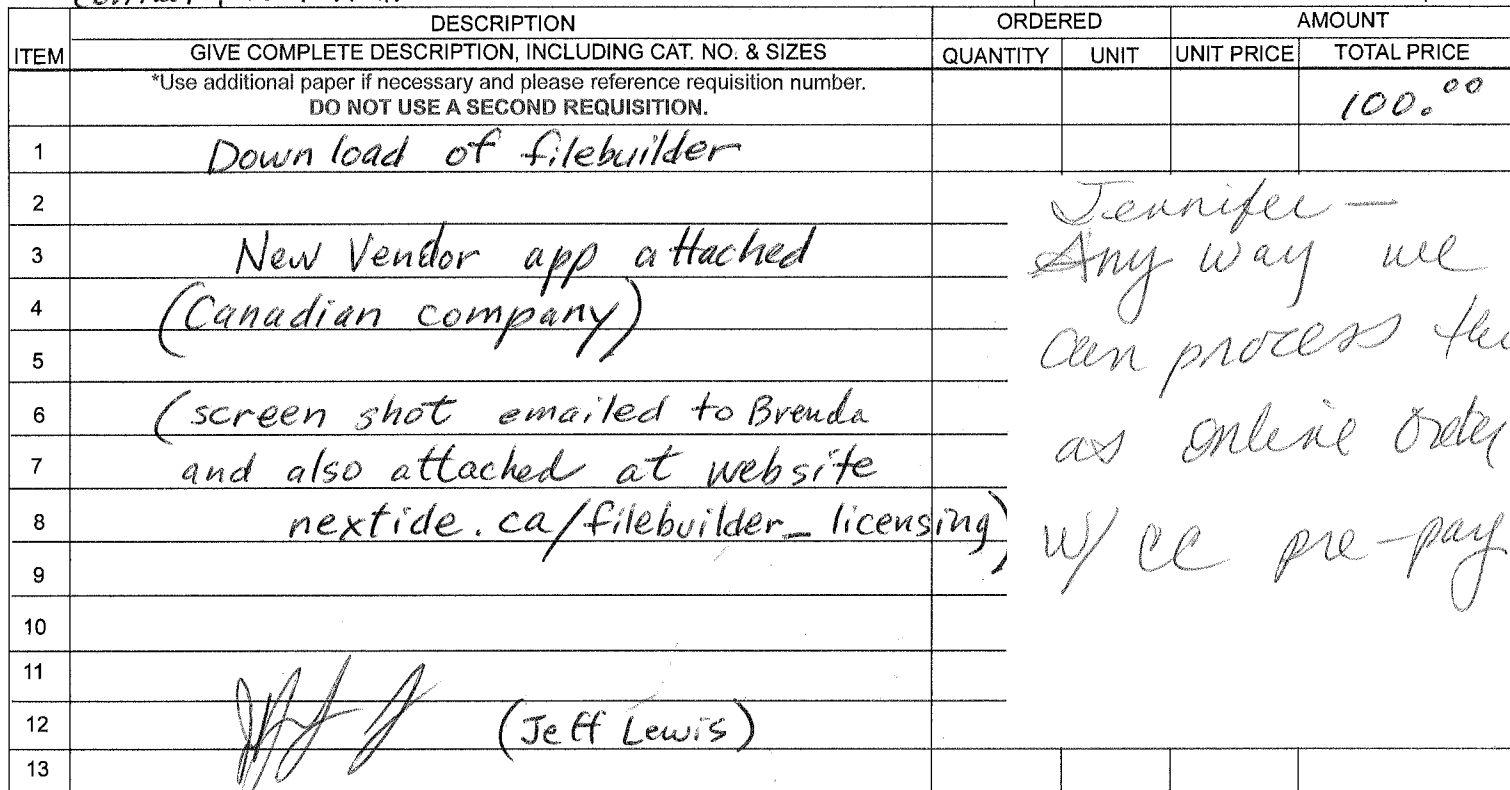 DESCRIPTION ORDERED AMOUNT
ITEM GIVE COMPLETE DESCRIPTION, INCLUDING CAT. NO. & SIZES QUANTITY UNIT UNIT PRICE TOTAL PRICE
*Use additional paper if necessary and please reference requisition number.
DO NOT USE A SECOND REQUISITION.
100.00
1 Download of filebuilder
2
3 New Vendor app attached
4 (Canadian company)
5
6 (screen shot emailed to Brenda
7 and also attached at website
8 nextide.ca/filebuilder_licensing)
9
10
11
12 (Jeff Lewis)
13
Jennifer —
Any way we
can process
as online order
w/ cc pre-pay